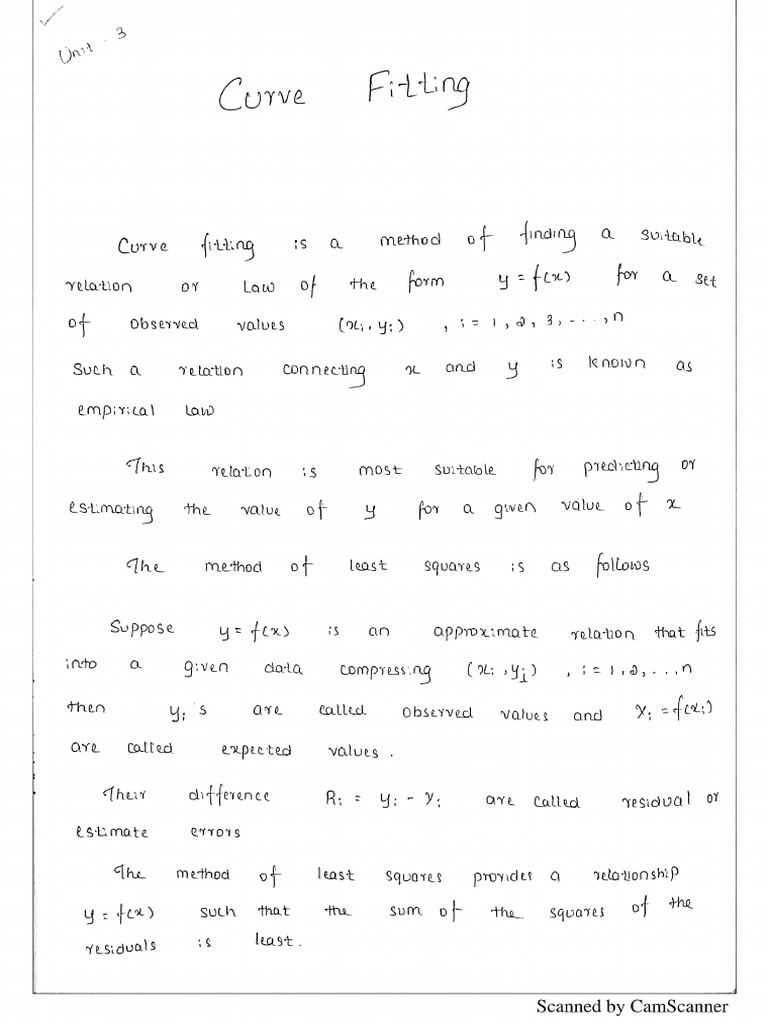 Unit - 3
Curve Fitting
Curve fitting is a method of finding a suitable
relation or law of the form y = f(x) for a set
of observed values (xi, yi) , i = 1, 2, 3, ..., n
Such a relation connecting x and y is known as
empirical law
This relation is most suitable for predicting or
estimating the value of y for a given value of x
The method of least squares is as follows
Suppose y = f(x) is an approximate relation that fits
into a given data compressing (xi, yi) , i = 1, 2, ..., n
then yi's are called observed values and Yi = f(xi)
are called expected values.
Their difference Ri = yi - Yi are called residual or
estimate errors
The method of least squares provides a relationship
y = f(x) such that the sum of the squares of the
residuals is least.
Scanned by CamScanner